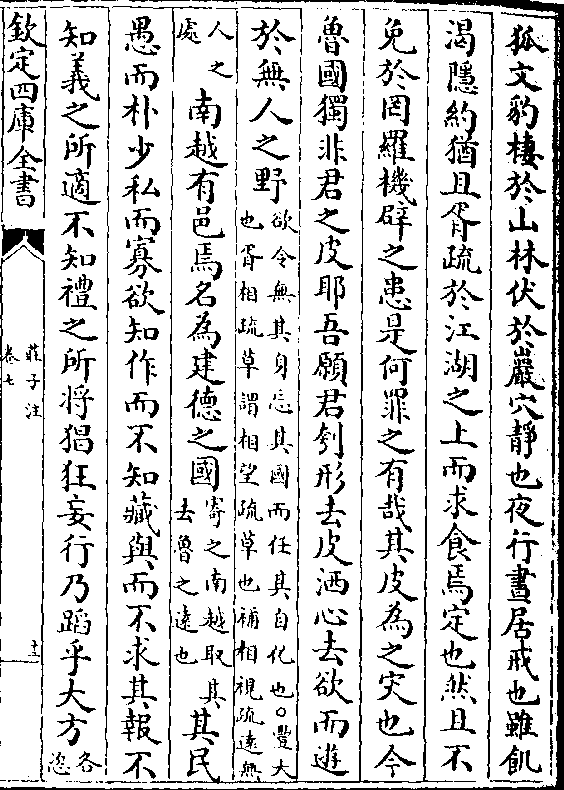 狐文豹棲於山林伏於巖穴靜也夜行晝居戒也雖飢
渴隱約猶且胥疏於江湖之上而求食焉定也然且不
免於罔羅機辟之患是何罪之有哉其皮為之災也今
魯國獨非君之皮耶吾願君刳形去皮洒心去欲而遊
於無人之野欲令無其身忘其國而任其自化也○豐大也胥相疏草謂相望疏草也補相視疏遠無
人之處南越有邑焉名為建德之國寄之南越取其去魯之遠也其民
愚而朴少私而寡欲知作而不知藏與而不求其報不
知義之所適不知禮之所將猖狂妄行乃蹈乎大方各恣
欽定四庫全書
莊子注
卷七